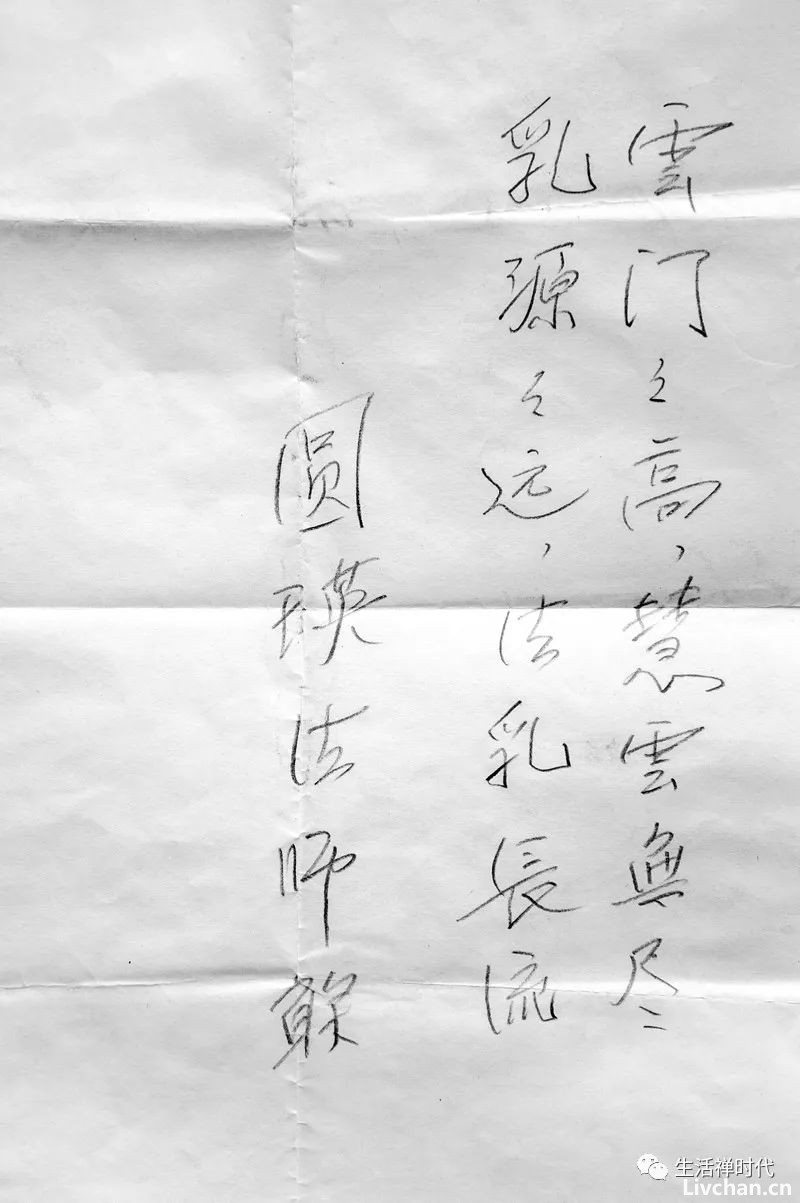 雲门之高，慧雲無尽
乳源之远，法乳長流
圆瑛法师
生活禅时代
Livchan.cn